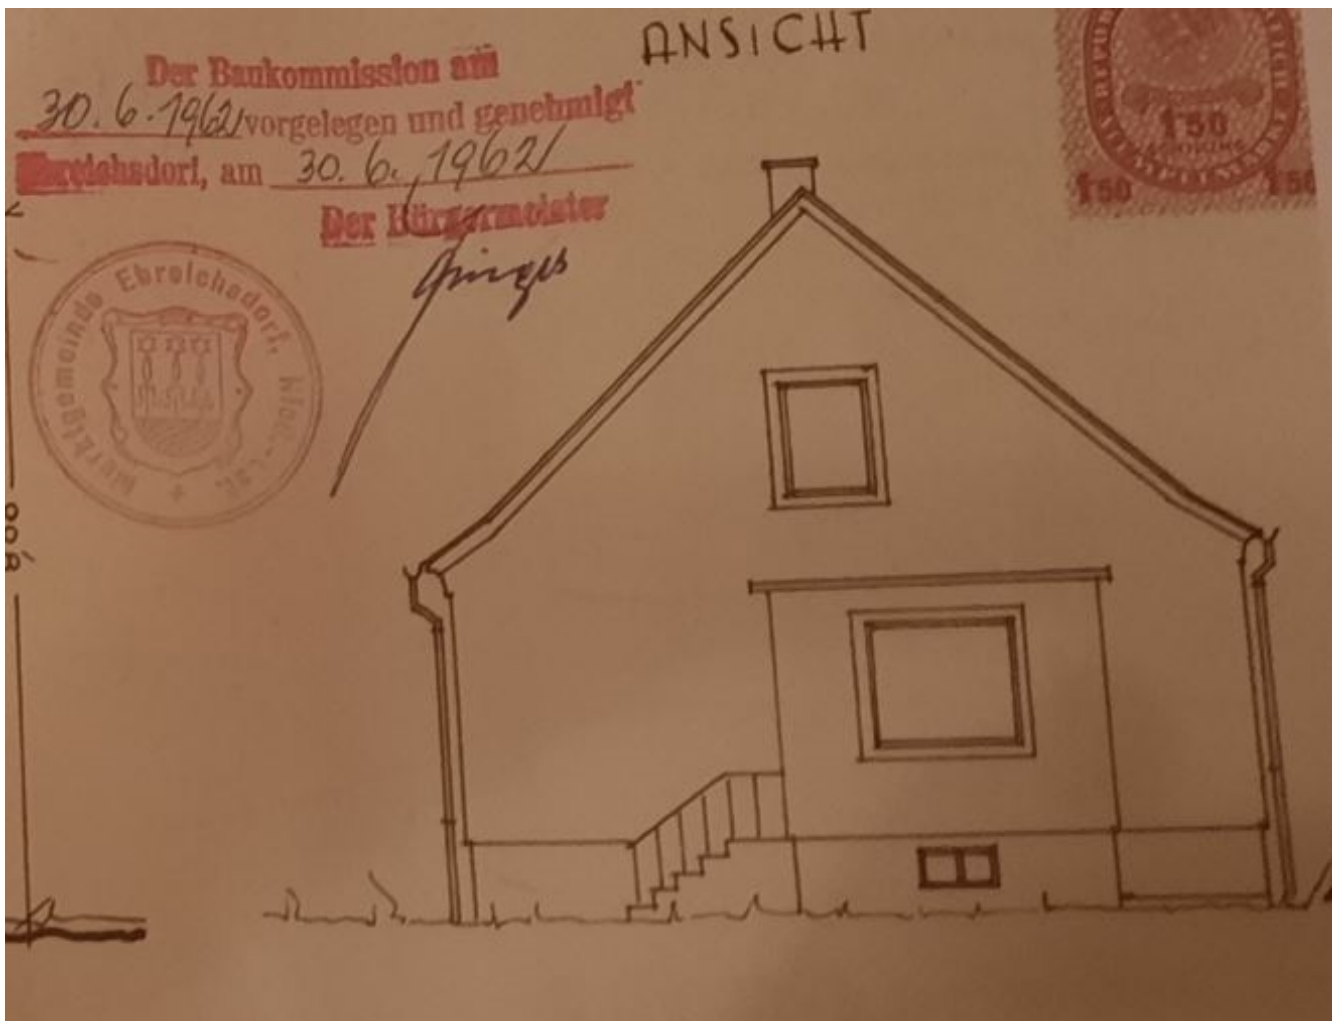 ANSICHT
Der Baukommission am
30.6.1962 vorgelegen und genehmigt
Ebreichsdorf, am 30.6.1962
Der Bürgermeister
Marktgemeinde Ebreichsdorf,
REPUB
REICH
1'50
SCHILLING
1'50
1'50